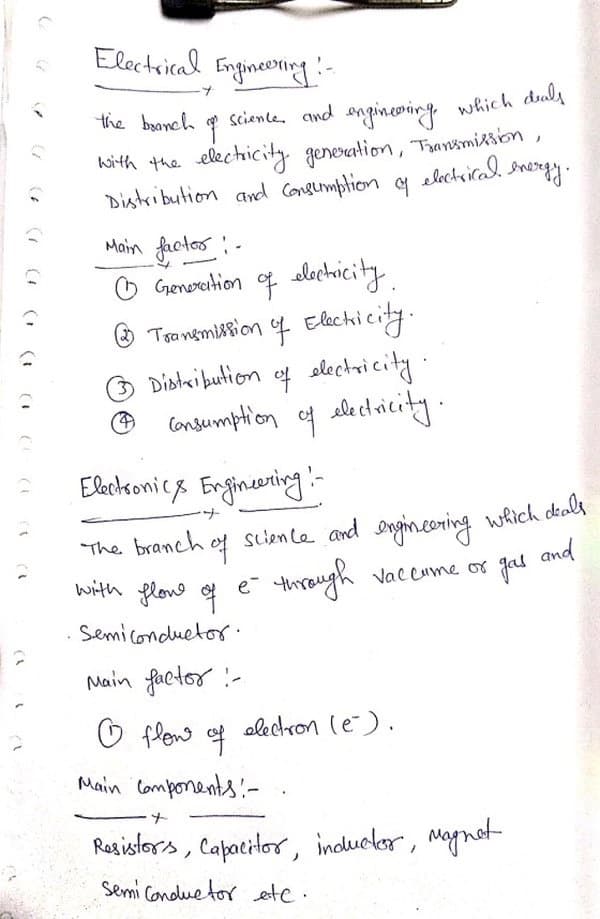 Electrical Engineering :-
The branch of science and engineering which deals
with the electricity generation, Transmission,
Distribution and Consumption of electrical energy.
Main factor :-
① Generation of electricity.
② Transmission of Electricity.
③ Distribution of electricity.
④ Consumption of electricity.
Electronics Engineering :-
The branch of science and engineering which deals
with flow of e⁻ through vaccume or gas and
Semiconductor.
Main factor :-
① flow of electron (e⁻).
Main Components :-
Resistors, Capacitor, inductor, Magnet
Semiconductor etc.